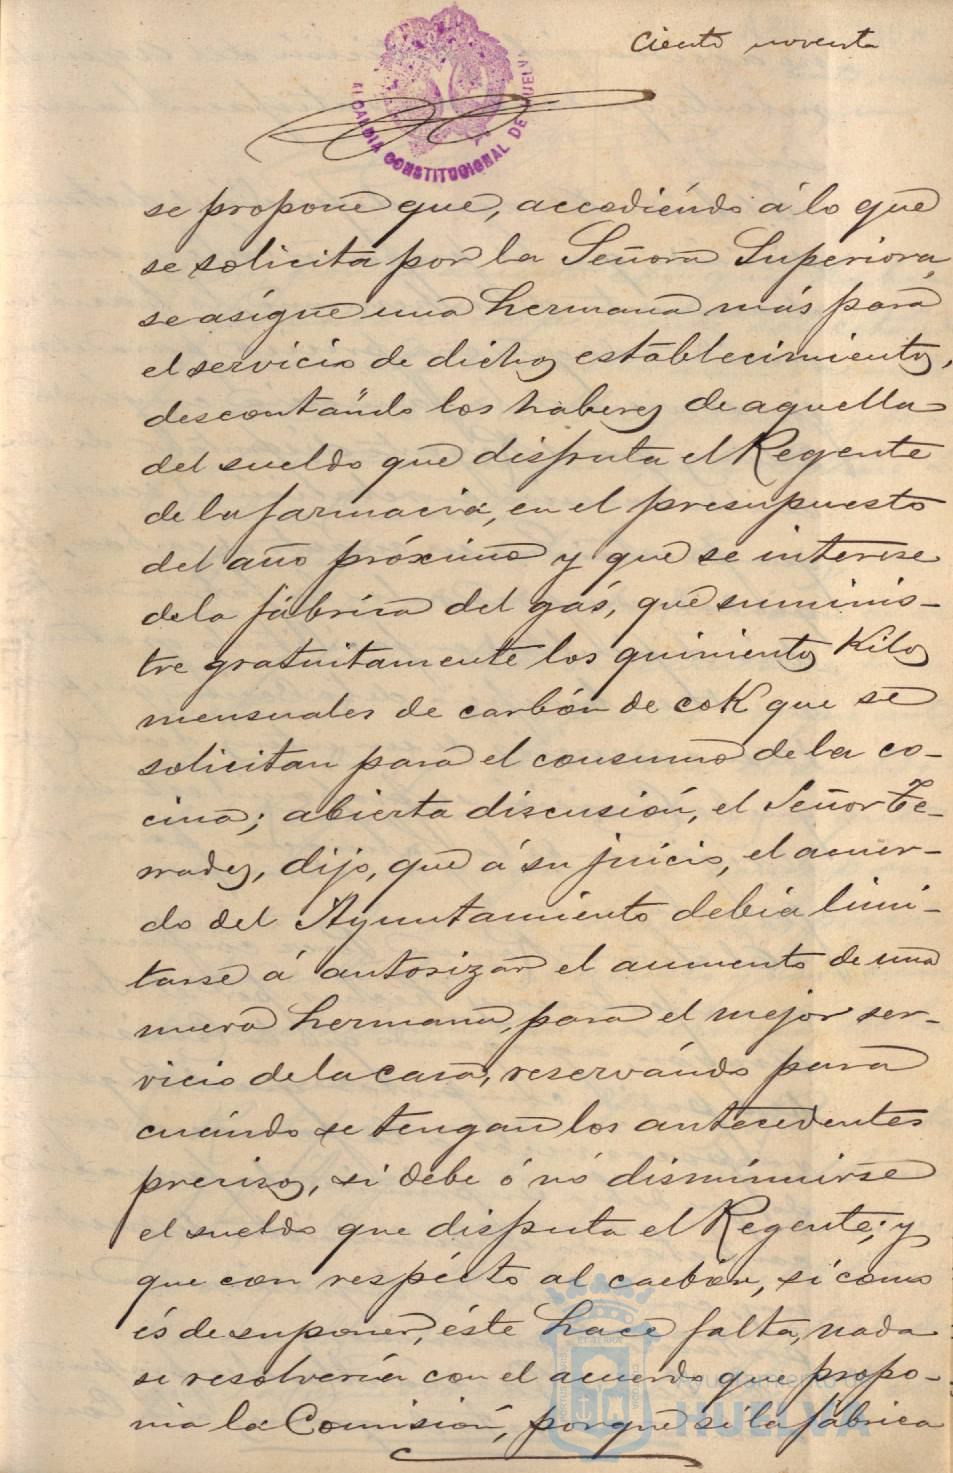 Ciento noventa
ALCALDIA CONSTITUCIONAL DE HUELVA
se propone que, accediéndo á lo que
se solicita por la Señora Superiora,
se asígne una hermana más para
el servicio de dicho establecimiento,
descontando los haberes de aquella
del sueldo que disfruta el Regente
de la farmacia, en el presupuesto
del año próximo y que se interese
de la fábrica del gás, que suminis-
tre gratuitamente los quinientos Kilos
mensuales de carbón de coK que se
solicitan para el consumo de la co-
cina; abierta discusión, el Señor Te-
rrades, dijo, que á su juicio, el acuer-
do del Ayuntamiento debia limi-
tarse á autorizar el aumento de una
nueva hermana, para el mejor ser-
vicio de la casa, reservándo para
cuándo se tengan los antecedentes
precisos, si debe ó nó disminuirse
el sueldo que disfruta el Regente; y
que con respécto al carbón, sí como
és de suponer, éste hace falta, nada
se resolveria con el acuerdo que propo-
nia la Comisión, porque si la fábrica
Ayuntamiento
HUELVA